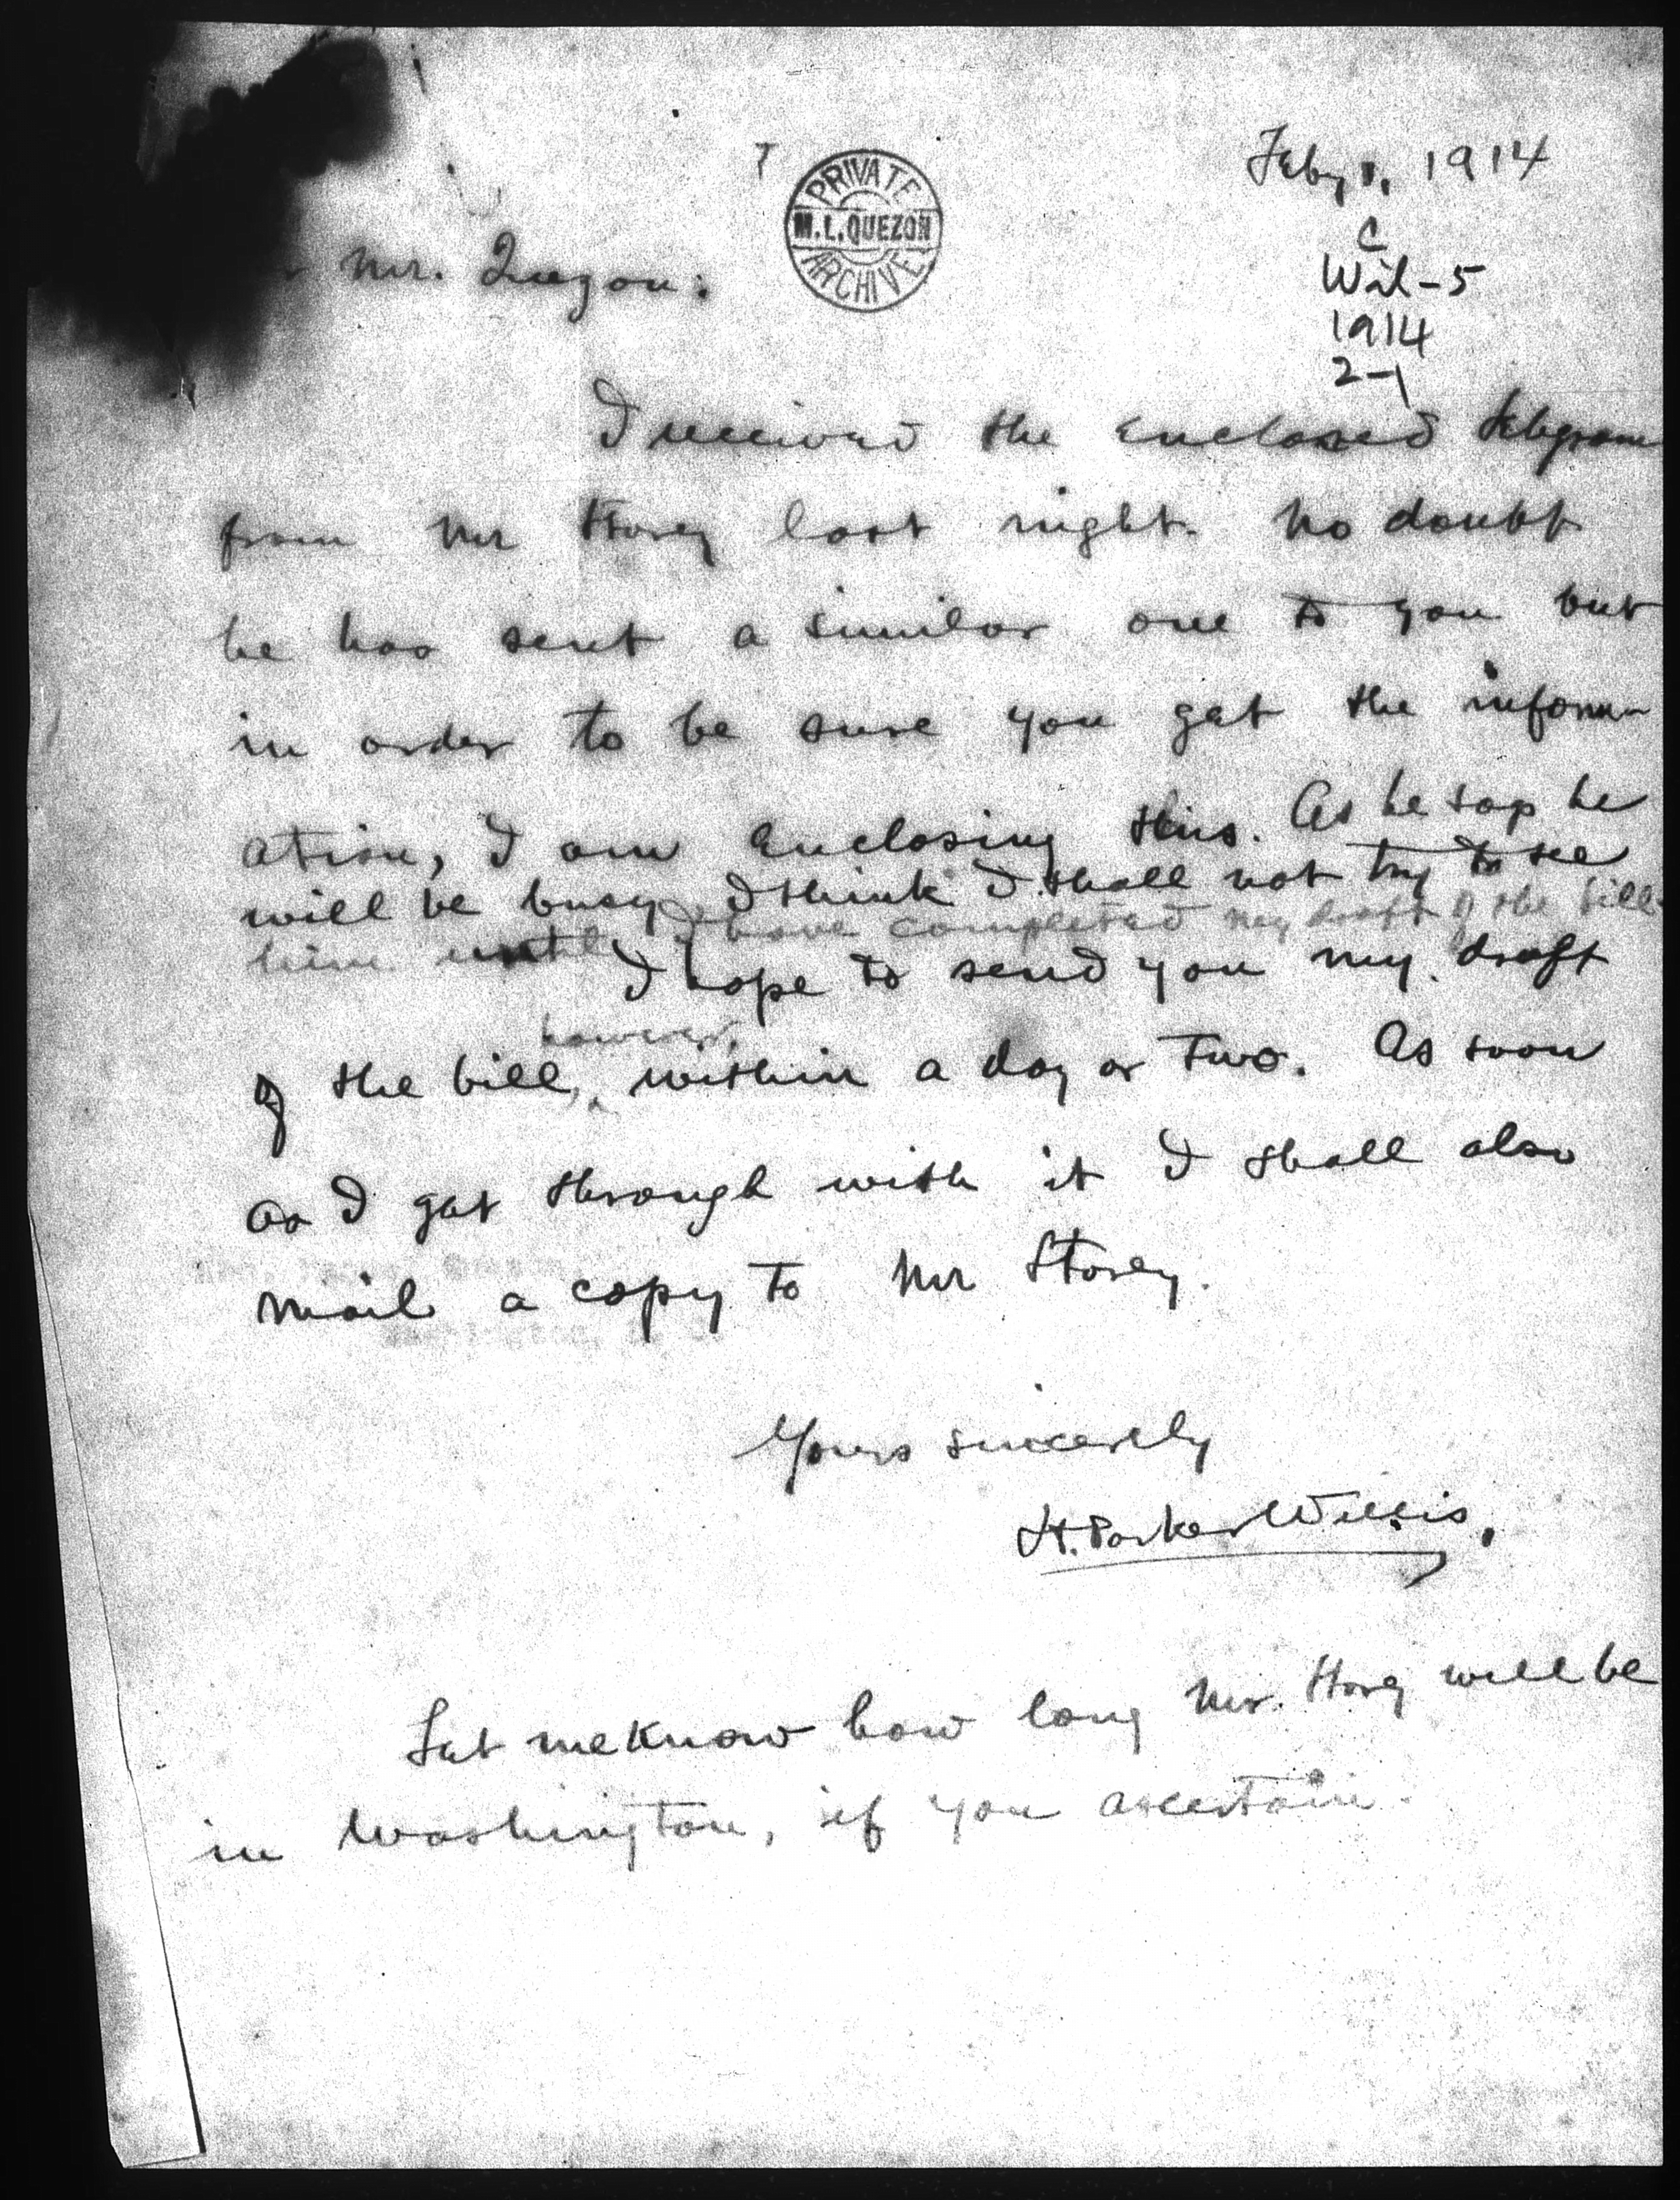 Feby 1, 1914
PRIVATE
M.L. QUEZON
ARCHIVE
C
Wil-5
1914
2-1
Mr. Quezon:
I received the enclosed telegram
from Mr Storey last night. No doubt
he has sent a similar one to you but
in order to be sure you get the inform-
ation, I am enclosing this. As he says he
will be busy I think I shall not try to see
him until I have completed my draft of the bill.
I hope to send you my draft
however,
of the bill, within a day or two. As soon
as I get through with it I shall also
mail a copy to Mr Storey.
Yours sincerely
H. Parker Willis.
Let me know how long Mr. Storey will be
in Washington, if you ascertain.